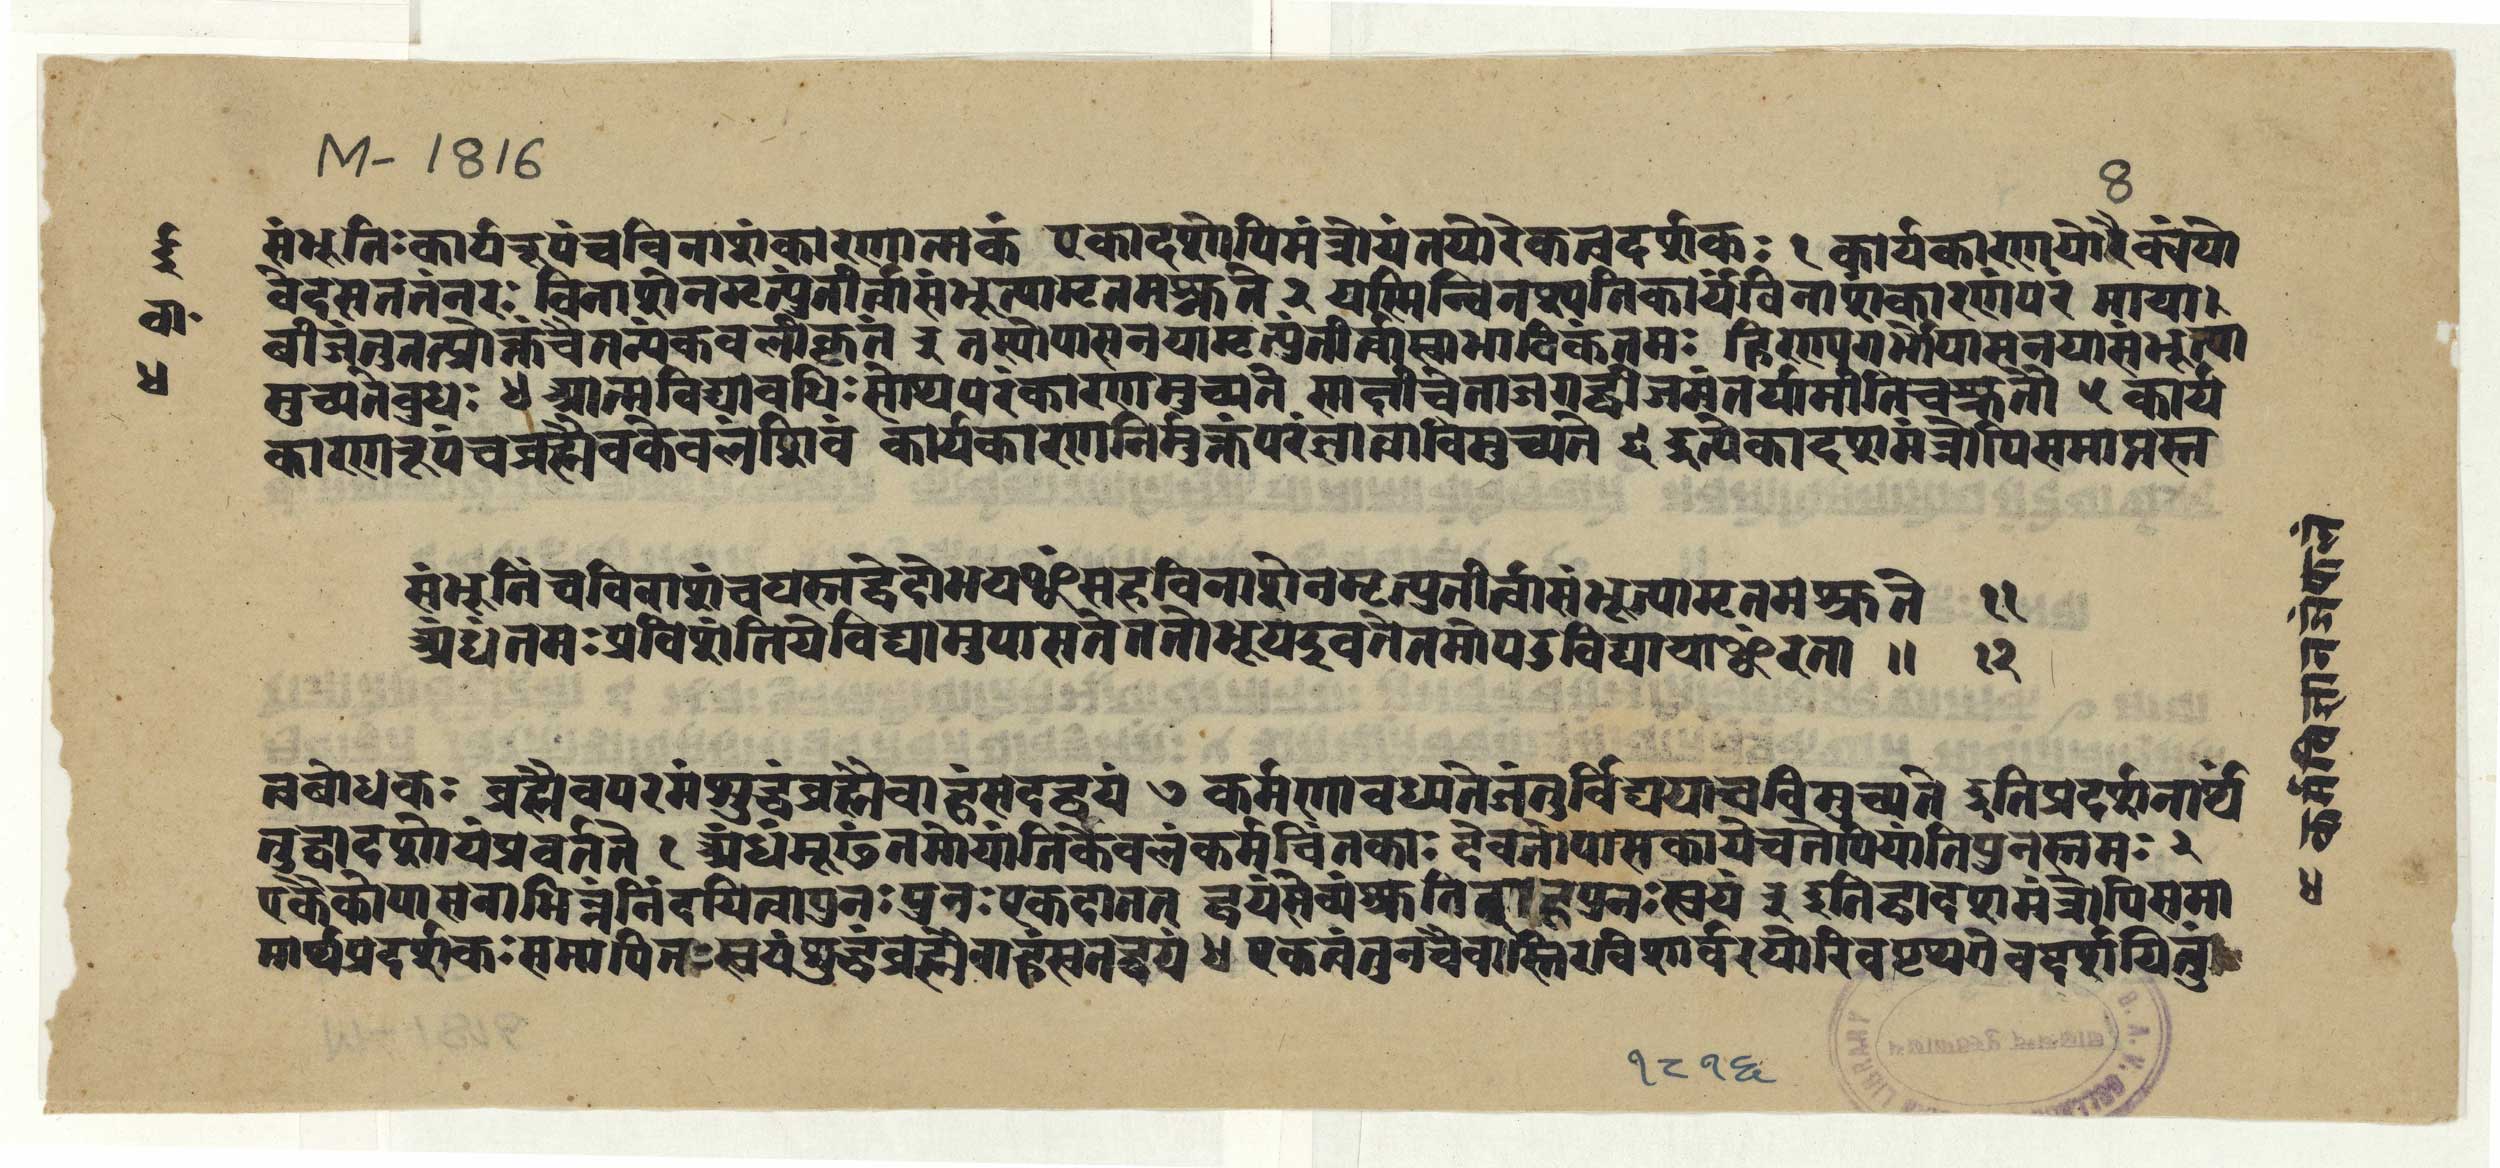 M-1816
8
ई
वा॰
४
संभूतिःकार्यरूपंचविनाशंकारणात्मकं एकादशोपिमंत्रोयंतयोरेकत्वदर्शकः १ कार्यकारणयोरैक्यंयो
वेदसततंनरः विनाशेनमृत्युंतीर्त्वासंभूत्यामृतमश्नुते २ यस्मिन्विनश्यतिकार्यंविनाशंकारणंपरं माया।
बीजंतुतत्प्रोक्तंचैतन्यंकवलीकृतं ३ तस्योपासनयामृत्युंतीर्त्वास्वाभाविकंतमः हिरण्यगर्भोपासनयासंभूत्या
मुच्यतेबुधः ४ आत्मविद्यावधिःसोथपरंकारणमुच्यते साक्षीचेताजगद्बीजमंतर्यामीतिचश्रुतौ ५ कार्य
कारणरूपंचब्रह्मैवकेवलंशिवं कार्यकारणनिर्मुक्तंपरंज्ञात्वाविमुच्यते ६ इत्येकादशमंत्रोपिसमाप्तस्त
संभूतिंचविनाशंचयस्तद्वेदोभयꣳसहविनाशेनमृत्युतीर्त्वासंभूत्यामृतमश्नुते ११
अंधंतमःप्रविशंतियेविद्यामुपासतेततोभूयइवतेतमोयउविद्यायाꣳरता ॥ १२
त्वबोधकः ब्रह्मैवपरमंशुद्धंब्रह्मैवाहंसदद्वयं ७ कर्मणाबध्यतेजंतुर्विद्ययाचविमुच्यते इतिप्रदर्शनार्थं
तुद्वादशोयंप्रवर्तते १ अंधंमूढंतमोयांतिकेवलंकर्मचिंतकाः देवतोपासकायेचतेपियांतिपुनस्तमः २
एकैकोपासनाभिन्नंनिंदयित्वापुनःपुनः एकदातत् द्वयंसेव्यंश्रुतिपुनःस्वयं ३ इतिद्वादशमंत्रोपिसमा
मार्थप्रदर्शकःसमापितःस्वयंशुद्धंब्रह्मैवाहंसतद्वयं ४ एकत्वंतुनचैवास्तिरविशार्वरयोरिवपृथगेवदर्शयितुं
४ कर्म
१८१६
D. A. V. COLLEGE
LIBRARY
लालचन्द पुस्तकालय